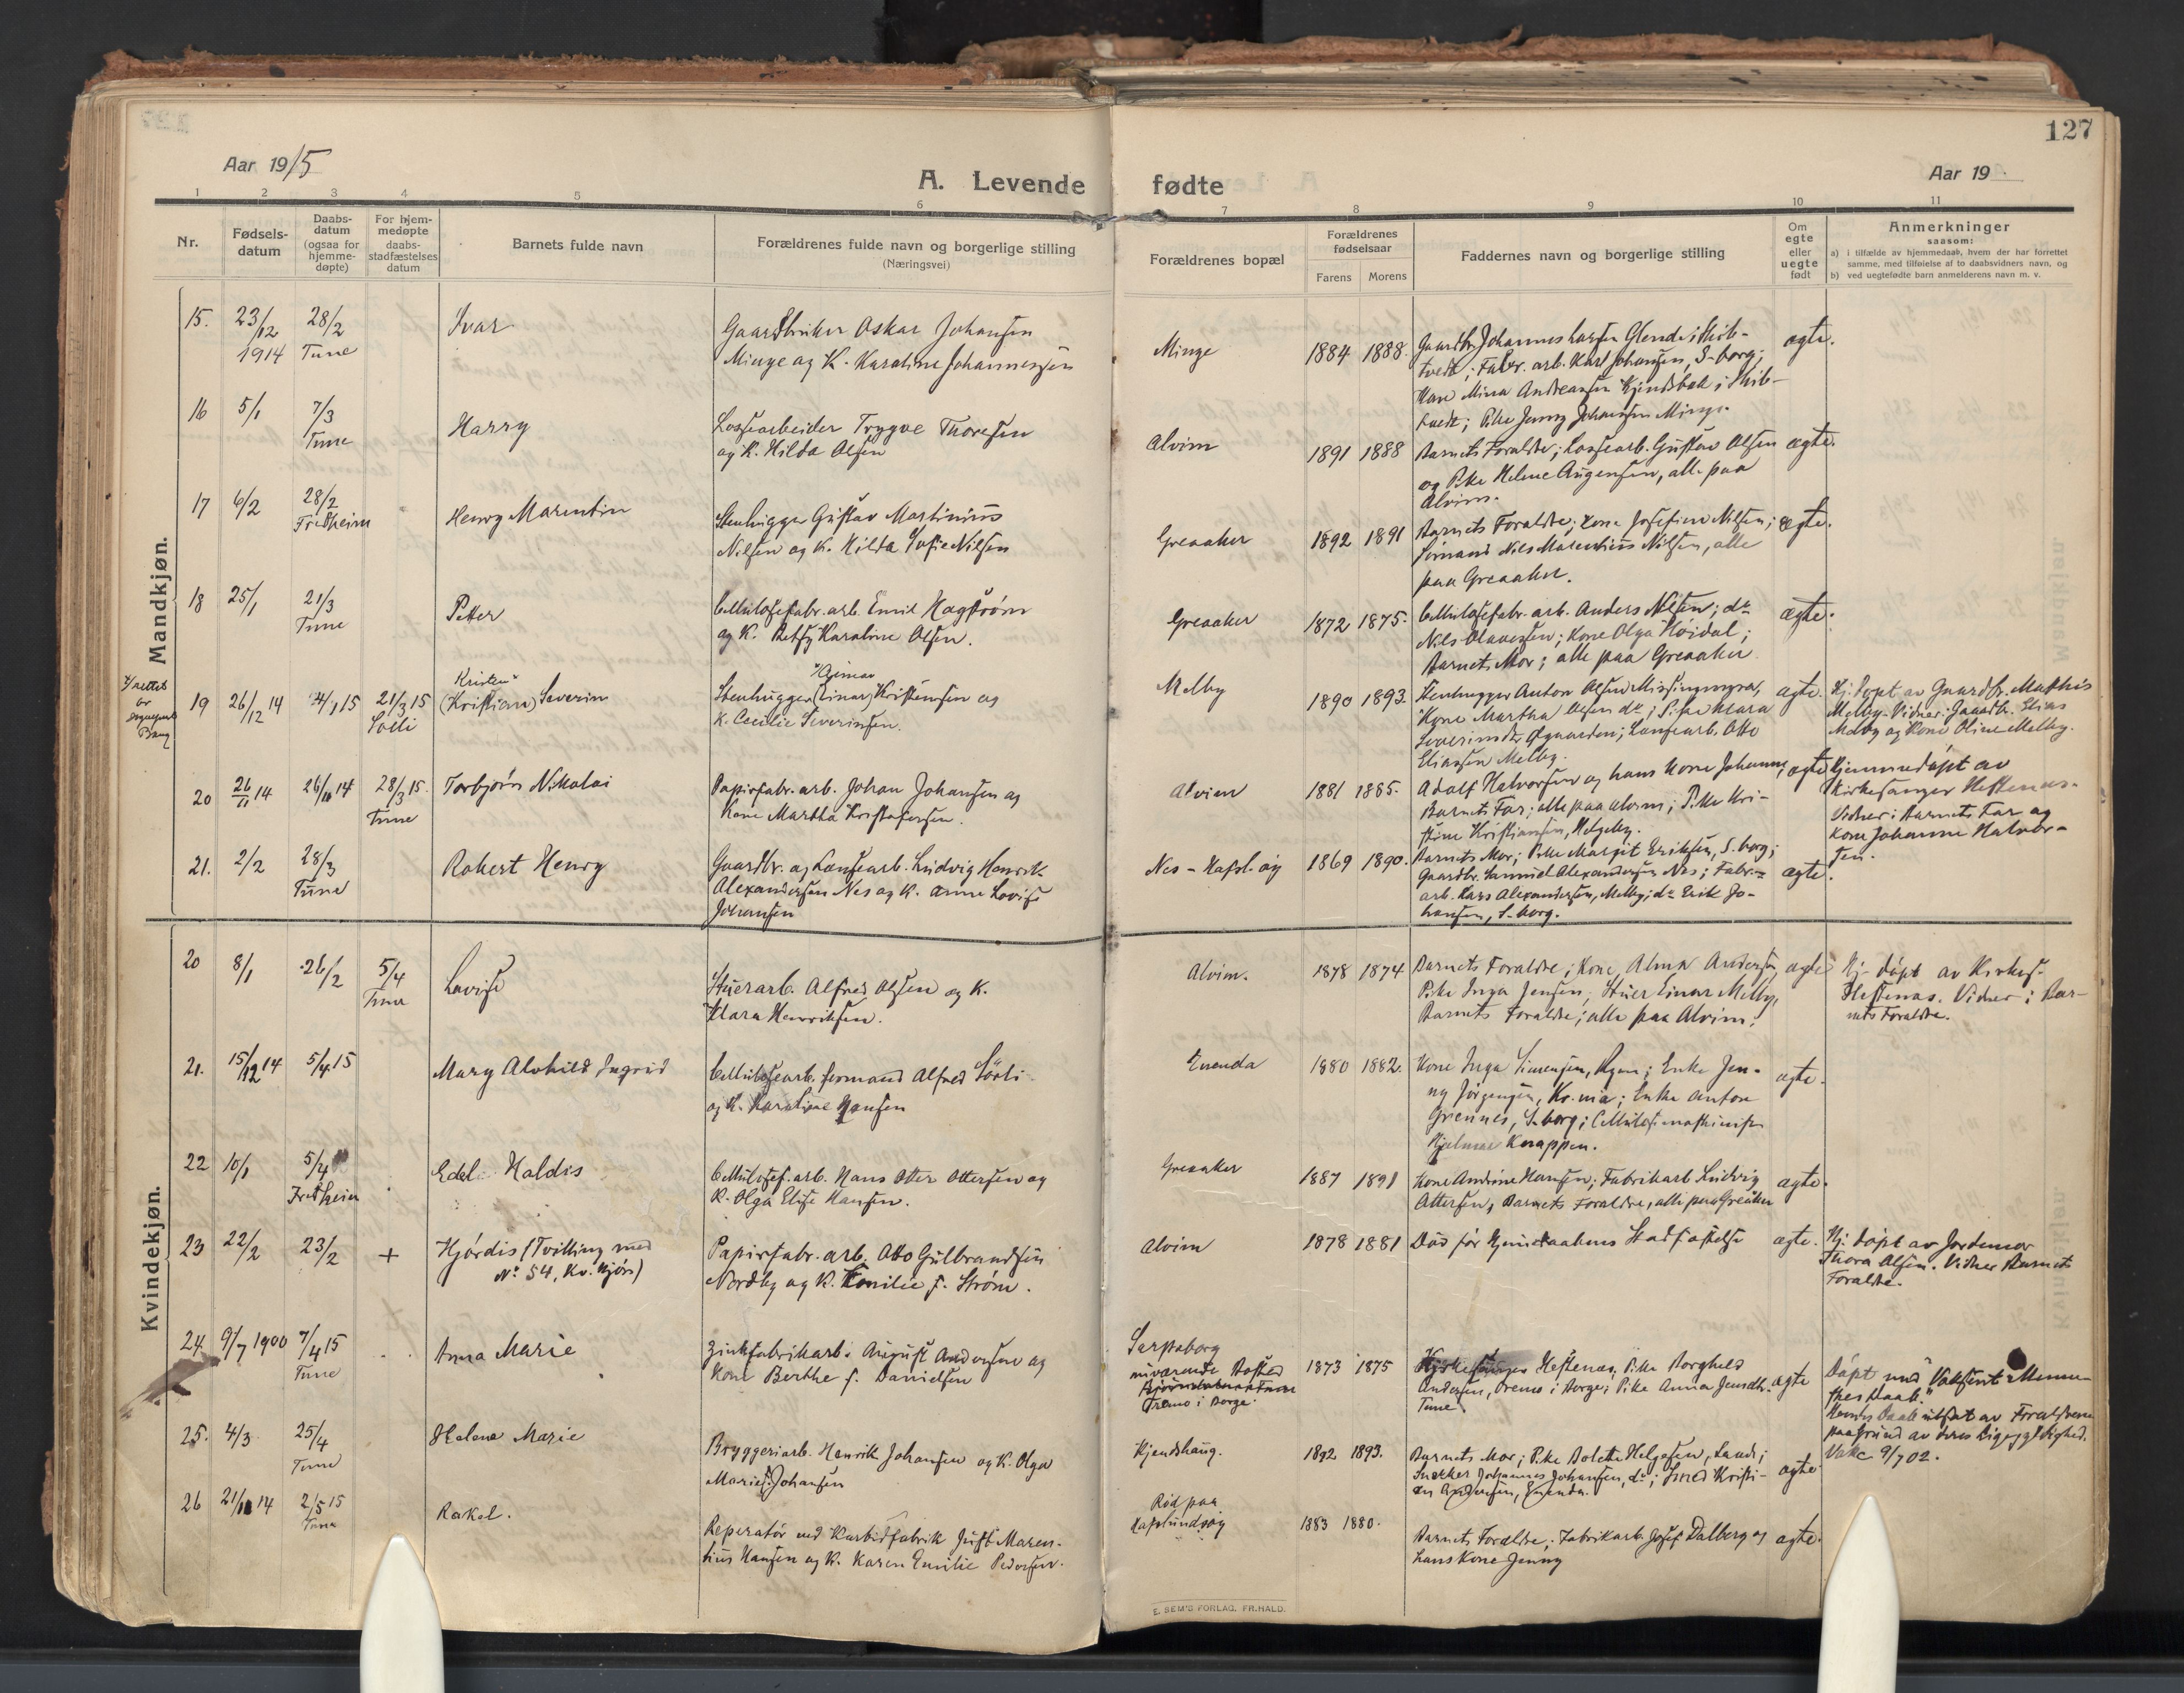 127
Aar 1915
A. Levende fødte
Aar 19
1 2 3 4 5 6 7 8 9 10 11
Nr.
Fødsels-
datum
Daabs-
datum
(ogsaa for
hjemme-
døpte)
For hjem-
medøpte
daabs-
stadfæstelses
datum
Barnets fulde navn
Forældrenes fulde navn og borgerlige stilling
(Næringsvei)
Forældrenes bopæl
Forældrenes
fødselsaar
Farens Morens
Faddernes navn og borgerlige stilling
Om
egte
eller
uegte
født
Anmerkninger
saasom:
a) i tilfælde av hjemmedaab, hvem der har forrettet
samme, med tilføielse af to daabsvidners navn, og
b) ved uegtefødte barn anmelderens navn m. v.
Mandkjøn.
15. 23/12 1914 28/2 Tune
Ivar
Gaardbruker Oskar Johansen
Minge og K. Karoline Johannessen
Minge
1884 1888.
Gaardbr. Johannes Larsen Glende i Skib-
tvedt; Fabr. arb. Karl Johansen, S-borg;
Kone Mina Andreassen Kjendsbæk i Skib-
tvedt; Pike Jenny Johansen Minge.
egte.
16 5/1 7/3 Tune
Harry
Lossearbeider Trygve Thoresen
og K. Hilda Olsen
Alvim
1891 1888
Barnets Forældre; Lossearb. Gustav Olsen
og Pike Helene Augensen, alle paa
Alvim.
egte.
17 6/2 28/2 Fredheim
Henry Marentin
Stenhugger Gustav Martinius
Nilsen og K. Hilda Sofie Nilsen
Greaaker
1892 1891
Barnets Forældre; Kone Josefine Nilsen;
Sømand Nils Marentius Nilsen, alle
paa Greaaker.
egte.
18 25/1 21/3 Tune
Petter
Cellulosefabr. arb. Emil Hagstrøm
og K. Betsy Karoline Olsen.
Greaaker
1872 1875.
Cellulosefabr. arb. Anders Nilsen; do
Nils Olavessen; Kone Olga Høidal;
Barnets Mor; alle paa Greaaker
egte.
19 26/12 14 4/1 15 21/3 15 Solli
Kristen
(Kristian) Severin
Reimar
Stenhugger (Einar) Kristensen og
K. Cecilie Severinsen.
Melby
1890 1893.
Stenhugger Anton Olsen Missingmyra,
Kone Martha Olsen do; Pike Klara
Severinsdtr. Øgaarden; Lossearb. Otto
Eliassen Melby.
egte.
Hj. døpt av Gaardbr. Mathis
Melby. Vidner: Gaardbr. Elias
Melby og Kone Oline Melby.
20 26/11 14 26/11 14 28/3 15. Tune
Torbjørn Nikolai
Papirfabr. arb. Johan Johansen og
Kone Martha Kristofersen.
Alvim
1881 1885.
Adolf Halvorsen og hans Kone Johanne,
Barnets Far; alle paa Alvim; Pike Kri-
stine Kristiansen, Helgeby.
egte
Hjemmedøpt av
Kirkesanger Heftenæs.
Vidner: Barnets Far og
Kone Johanne Halvor-
sen.
21. 2/2 28/3 Tune
Robert Henry
Gaardbr. og Lossearb. Ludvig Henrik
Alexandersen Nes og K. Anne Lovise
Johansen
Nes - Hafsl. øy
1869 1890.
Barnets Mor; Pike Margit Eriksen, S. borg;
Gaardbr. Samuel Alexandersen Nes; Fabr.
arb. Lars Alexandersen, Melby; do Erik Jo-
hansen, S-borg.
egte.
Kvindekjøn.
20 8/1 26/2 5/4 Tune
Lovise
Stuerarb. Alfred Olsen og K.
Klara Henriksen.
Alvim.
1878 1874
Barnets Forældre; Kone Alma Andersen,
Pike Inga Jensen; Stuer Einar Melby,
Barnets Forældre; alle paa Alvim.
egte
Hj. døpt av Kirkes.
Heftenæs. Vidner: Bar-
nets Forældre.
21. 15/12 14 5/4 15
Mary Alvhild Ingrid
Cellulosearb. Fermand Alfred Sørli
og K. Karoline Hansen
Enenda
1880 1882.
Kone Inga Simensen, Rygen; Enke Jen-
ny Jørgensen, Kr.nia; Enke Anton
Grennes, S-borg; Cellulosemaskinist
Hjelmar Knappen.
egte.
22 10/1 5/4 Fredheim
Edel Haldis
Cellulosef. arb. Hans Otter Ottersen og
K. Olga Elise Hansen.
Greaaker
1887 1891
Kone Andrine Hansen; Fabrikarb. Ludvig
Ottersen, Barnets Forældre, alle paa Greaker
egte.
23 22/2 23/2 +
Hjørdis (Tvilling med
No 54, Kv. kjøn)
Papirfabr. arb. Otto Gulbrandsen
Nordby og K. Emilie f. Strøm.
Alvim
1878 1881
Død før Hjemmedaabens Stadfæstelse
egte.
Hj. døpt av Jordemor
Thora Olsen. Vidner Barnets
Forældre.
24. 9/7 1900 7/4 15 Tune
Anna Marie
Zinkfabrikarb. August Andersen og
Kone Berthe f. Danielsen
Sarpsborg
nuværende Bosted
Oremo i Borge.
1873 1875
Kirkesanger Heftenæs, Pike Borghild
Andersen, Oremo i Borge; Pike Anna Jensdtr.
Tune.
egte
Døpt med "Voksent Menne-
skes Daab."
Hendes Daab utsat av Forældrene
paa Grund av deres Ligegyldighed.
Vakc. 9/7 02.
25. 4/3 25/4 Tune
Helene Marie
Bryggeriarb. Henrik Johansen og K. Olga
Marie Johansen
Kjendshaug.
1892 1893.
Barnets Mor; Pike Bolette Helgesen, Lande;
Snekker Johannes Johansen, do; Smed Kristi-
an Andersen, Enenda.
egte.
26 21/11 14 2/5 15 Tune
Rakel.
Reperatør ved Karbidfabrik Just Maren-
tius Hansen og K. Karen Emilie Pedersen.
Rød paa
Hafslundsøy
1883 1880.
Barnets Forældre; Fabrikarb. Josef Dalberg og
hans Kone Jenny
egte.
E. SEM'S FORLAG. FR.HALD.